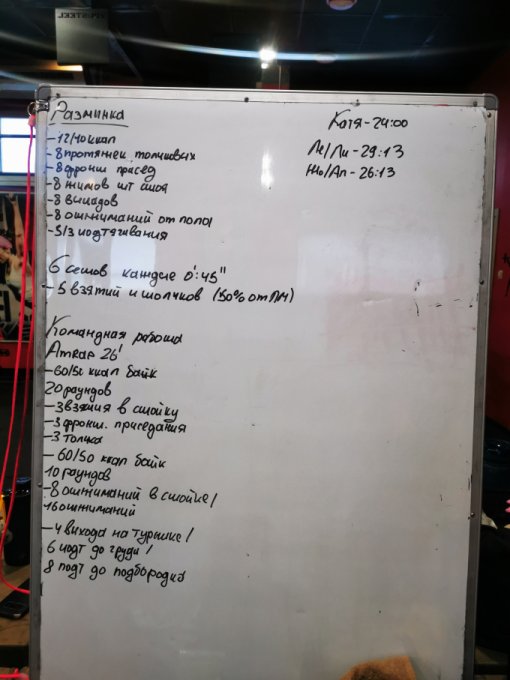 Разминка
-12/10 ккал
-8 протяжек толчковых
-8 фронт присед
-8 жимов шт стоя
-8 выпадов
-8 отжиманий от пола
-5/3 подтягивания
6 сетов каждые 0':45"
-5 взятий и толчков (50% от ПМ)
Командная работа
Amrap 26'
-60/50 ккал байк
20 раундов
-3 взятия в стойку
-3 фронт. приседания
-3 толчка
-60/50 ккал байк
10 раундов
-8 отжиманий в стойке/
16 отжиманий
-4 выхода на турнике/
6 подт до груди/
8 подт до подбородка
Котя-24:00
Ле/Ли-29:13
Ан-26:13